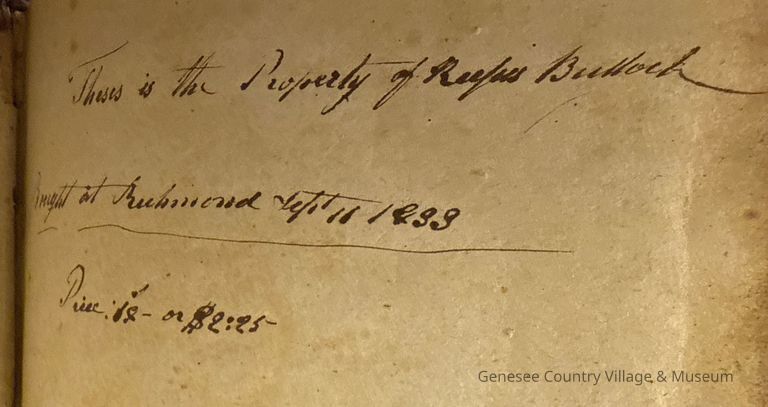 Theses is the Property of Rufus Bullock
Bought at Richmond Sept 11 1833
Price 18/- or $2:25
Genesee Country Village & Museum